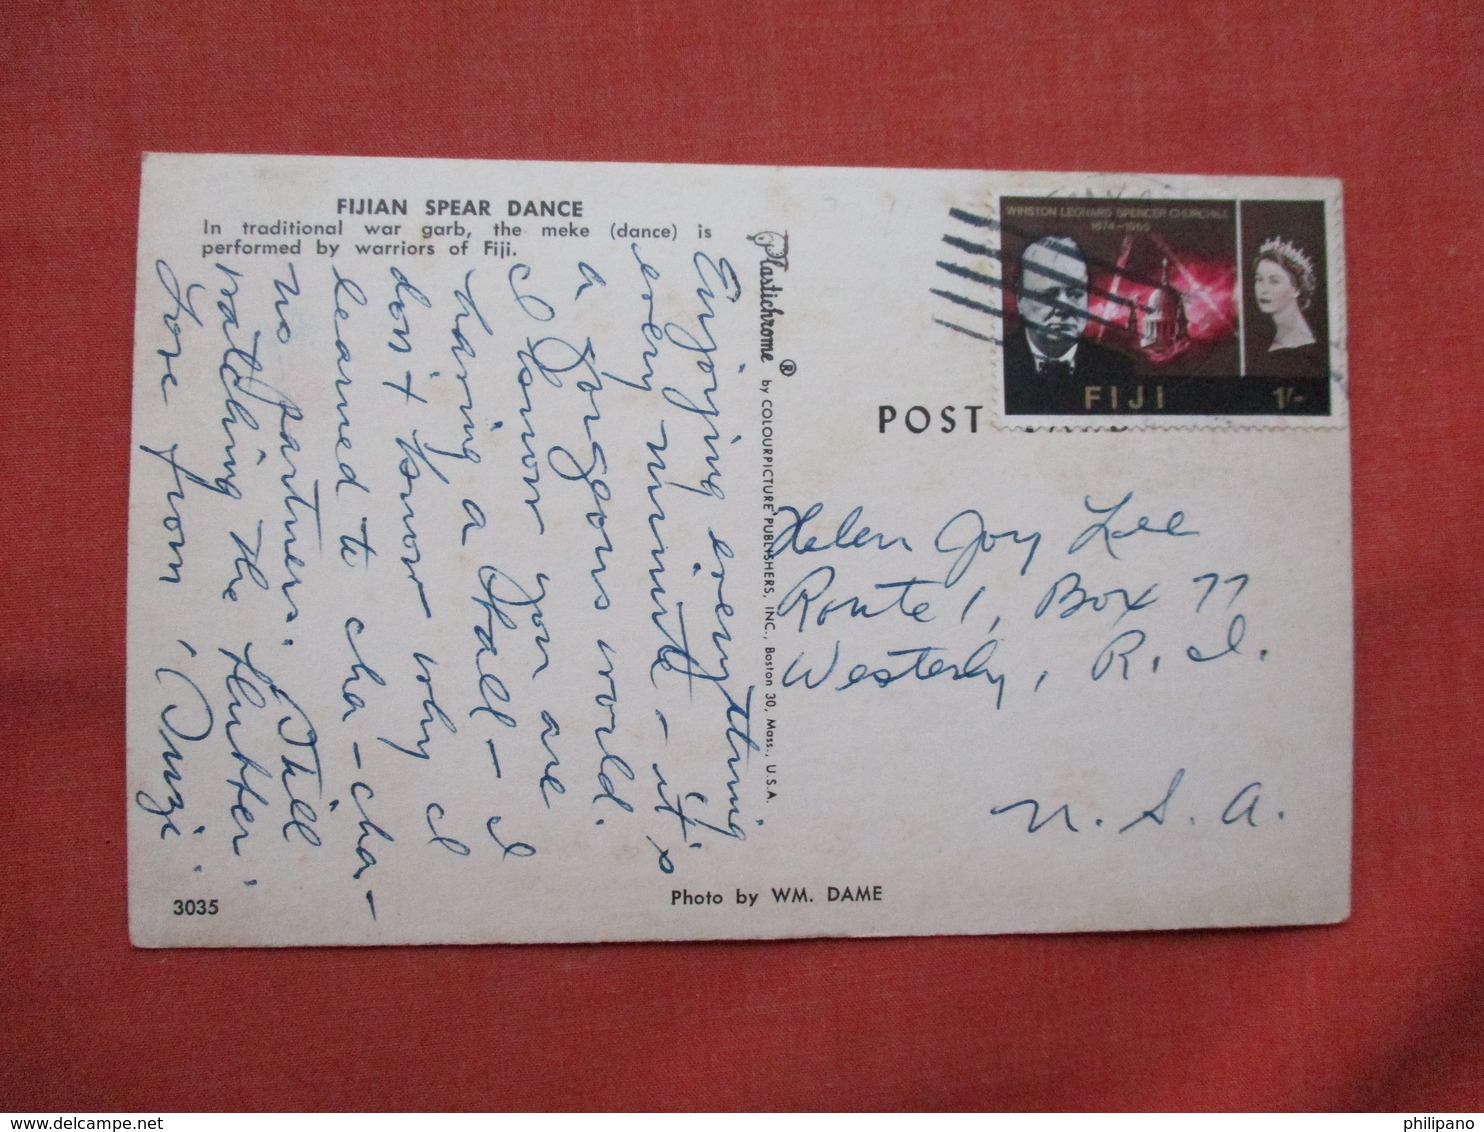 FIJIAN SPEAR DANCE
In traditional war garb, the meke (dance) is
performed by warriors of Fiji.
Enjoying everything
every minute - it's
a gorgeous world.
I know you are
having a ball - I
don't know why I
learned to cha-cha-
no partners. Still
watching the flutter.
Love from,
Suzi.
Plastichrome ® by COLOURPICTURE PUBLISHERS, INC., Boston 30, Mass., U.S.A.
WINSTON LEONARD SPENCER CHURCHILL
1874-1965
FIJI 1/-
POST
Helen Joy Lee
Route 1, Box 77
Westerly, R.I.
U.S.A.
3035
Photo by WM. DAME
philipano
delcampe.net